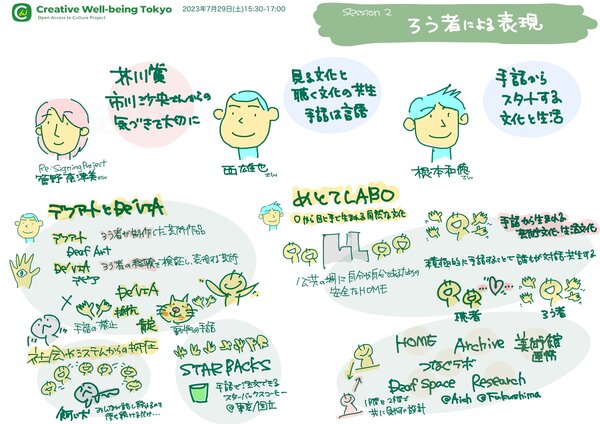 Creative Well-being Tokyo
Open Access to Culture Project
2023年7月29日(土)15:30-17:00
Session 2
ろう者による表現
芥川賞
市川沙央さんからの
気づきを大切に
Re:Signing Project
菅野奈津美さん
見る文化と
聴く文化の共生
手話は言語
西 雄也さん
手話から
スタートする
文化と生活
根本和徳さん
デフアートとDeVIA
デフアート ろう者が制作した芸術作品
Deaf Art
DeVIA ろう者の経験を検証し、表現する芸術
デビィア
×
DeVIA
抵抗
肯定
手話の禁止
動物の手話
社会やシステムからの抑圧
STARBACKS
手話で注文できる
スターバックスコーヒー
@東京/国立
めとてLABO
0から目と手で生まれる自然な文化
公共の場に自分が自分であるための
安全なHOME
手話から生まれる
芸術文化・生活文化
積極的に手話することで誰もが対話・共生する
聴者
ろう者
HOME Archive 美術館
連携
つなぐラボ
Deaf Space Research
@Aichi @Fukushima
1階と2階で
共に見える設計